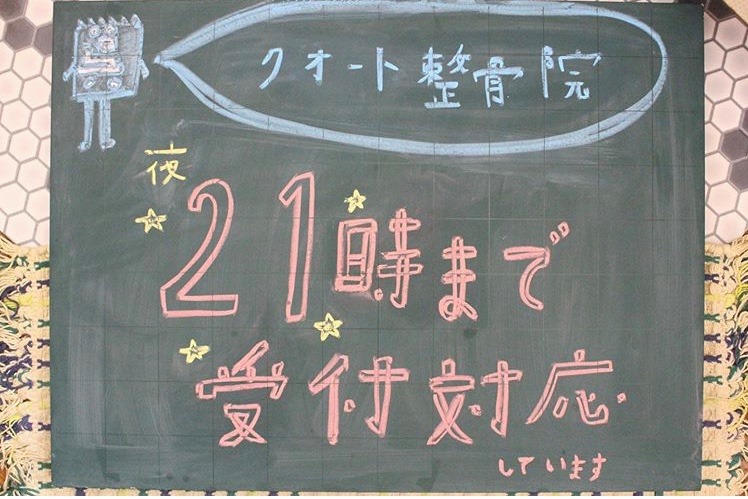 クオート整骨院
夜
21時まで
受付対応
しています